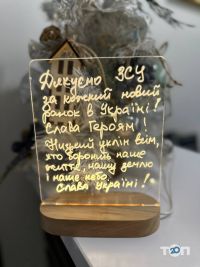 Дякуємо ЗСУ
за кожний новий
ранок в Україні!
Слава Героям!
Низький уклін всім,
хто боронить наше
життя, нашу землю
і наше небо.
Слава Україні!
ТОП20